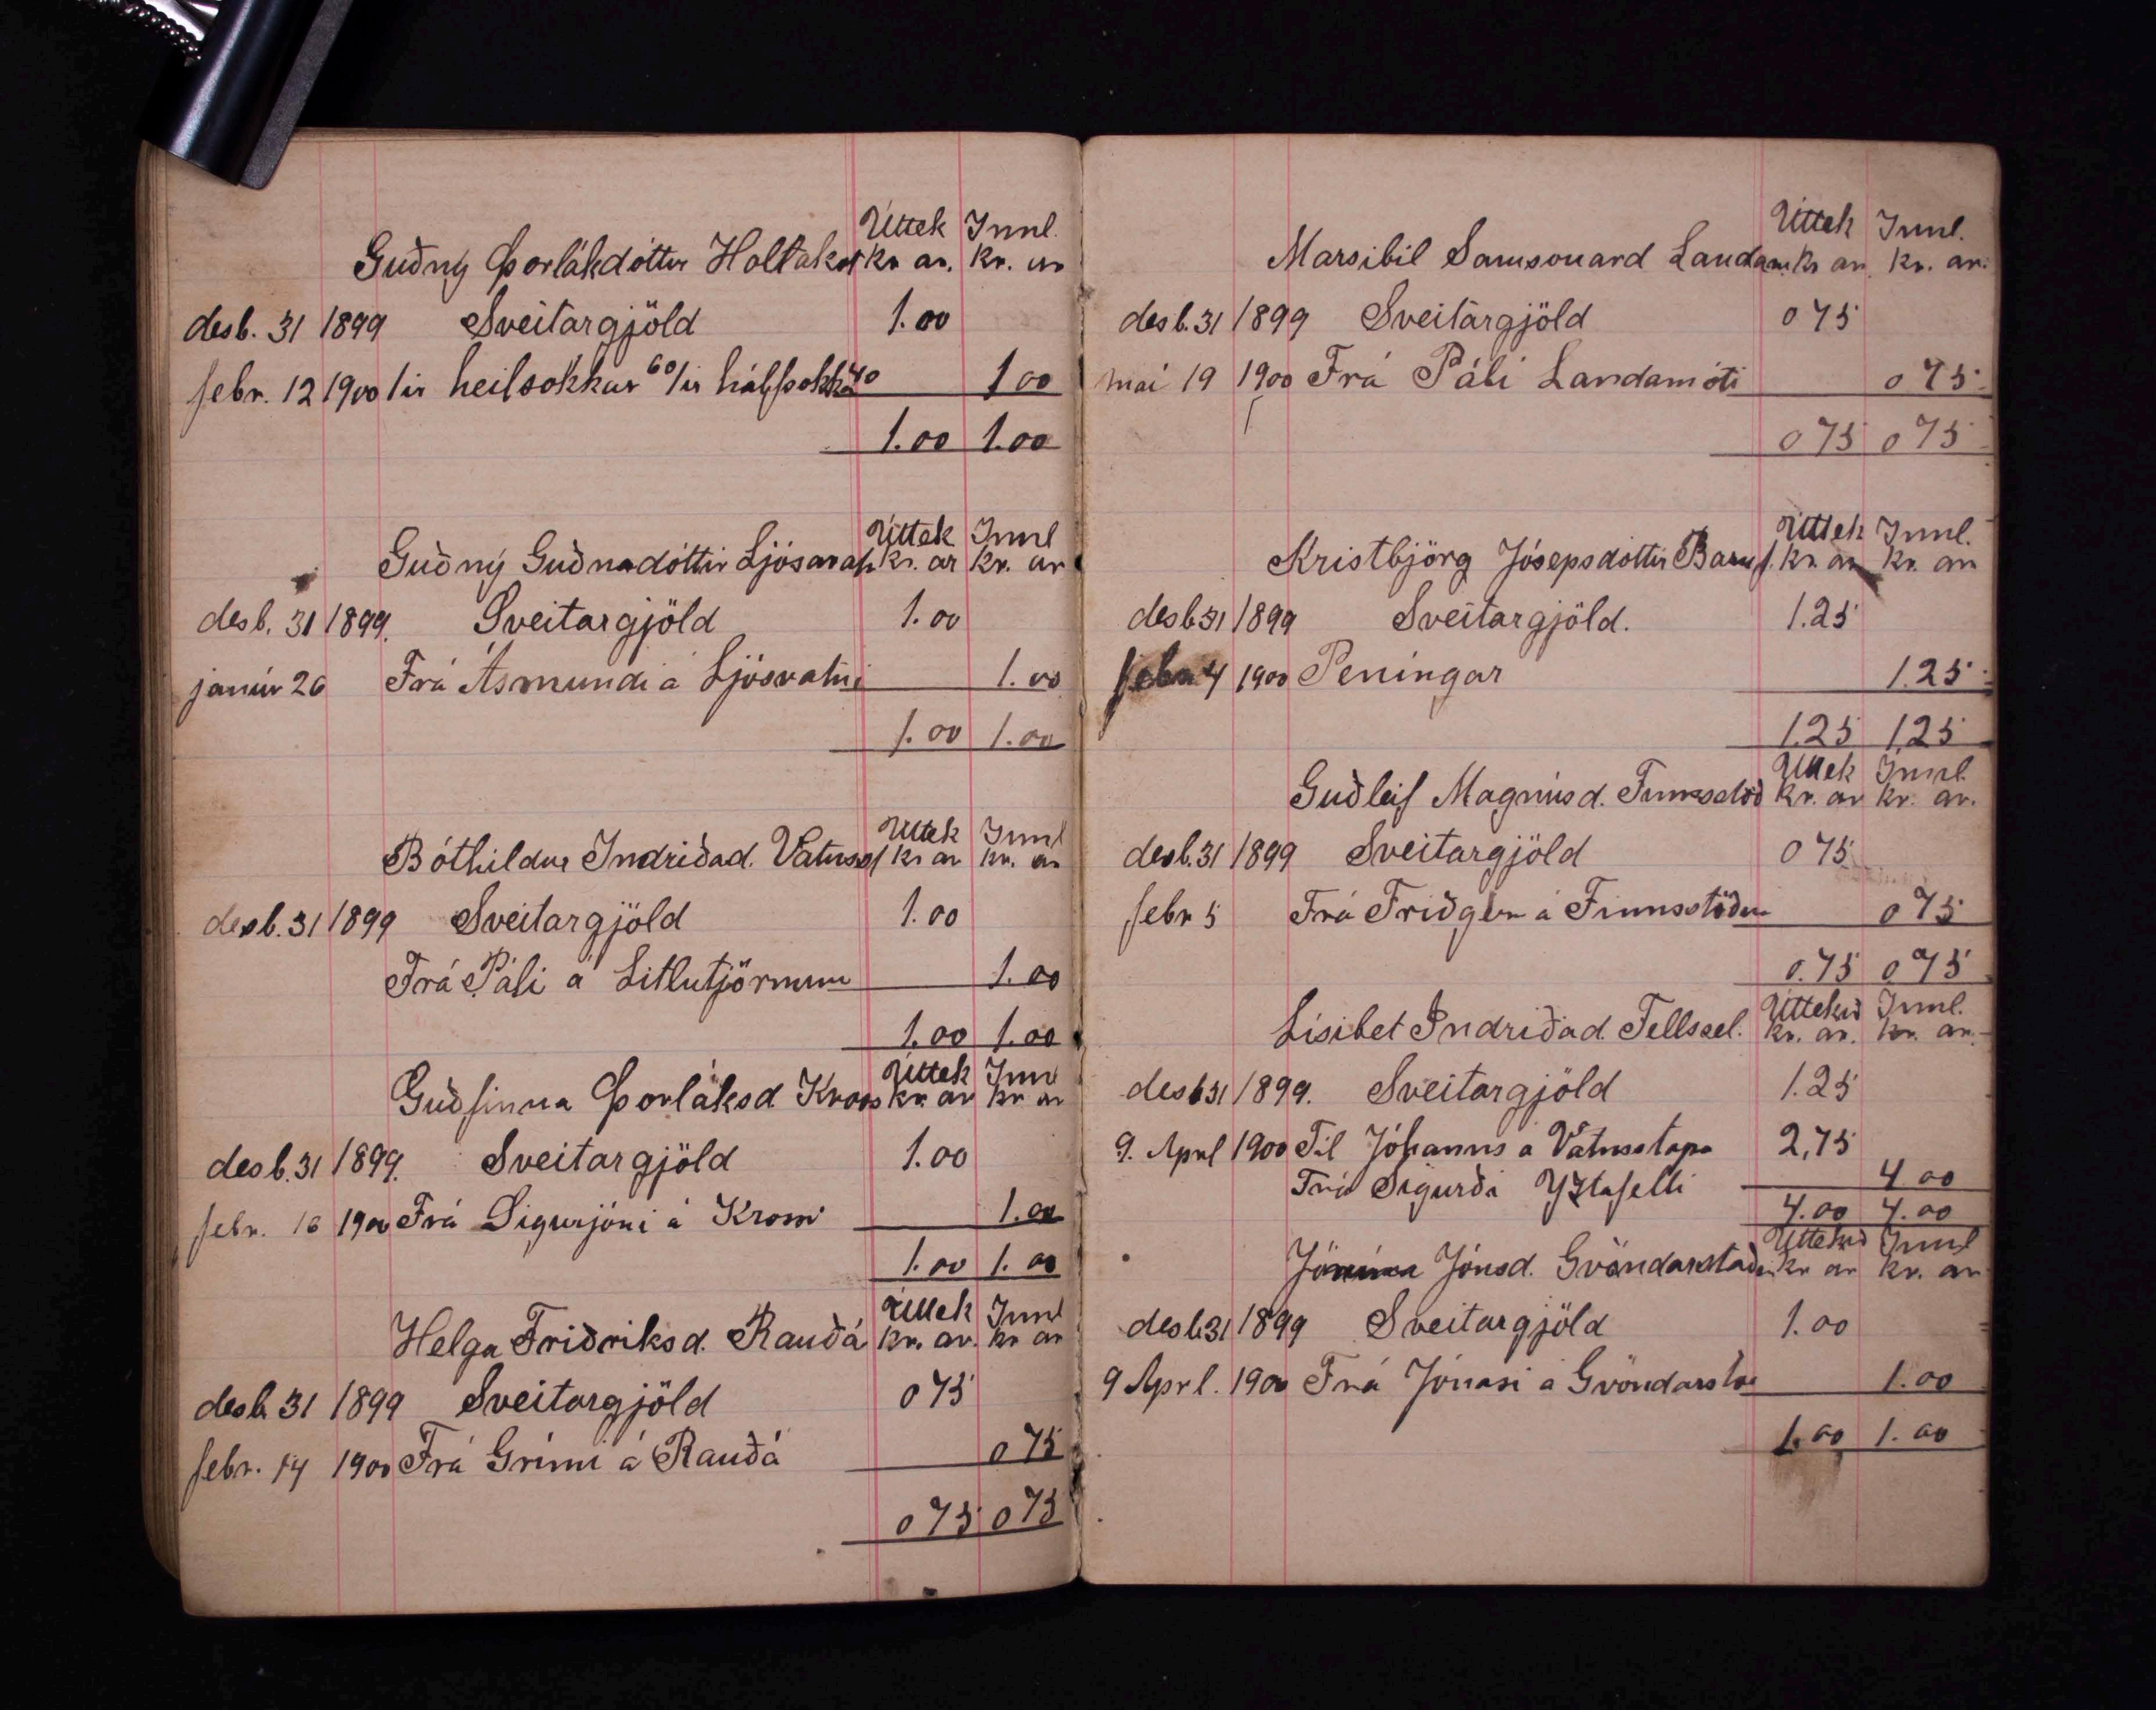 Úttek Innl.
Guðný Þorlákdóttir Holtakot kr. ar. kr. ar
desb. 31 1899 Sveitargjöld 1.00
febr. 12 1900 1/ir heilsokkar 60 1/ir hálfsokka 40 1 00
1.00 1.00
Úttek Innl
Guðný Guðnadóttir Ljósavatn kr. ar kr. ar
desb. 31 1899. Sveitargjöld 1.00
janúr 26 Frá Ásmundi á Ljósvatni 1.00
1.00 1.00
Úttek Innl
Bóthildur Indriðad. Vatnse kr ar kr. ar
desb. 31 1899 Sveitargjöld 1.00
Frá Páli á Litlutjörnum 1.00
1.00 1.00
Úttek Inn
Guðfinna Þorláksd Kross kr ar kr ar
desb. 31 1899. Sveitargjöld 1.00
febr. 16 1900 Frá Sigurjóni á Krossi 1.00
1.00 1.00
Úttek Innl
Helga Friðriksd. Rauðá kr. ar. kr ar
desb 31 1899 Sveitargjöld 0 75
febr. 14 1900 Frá Grími á Rauðá 0 75
0 75 0 75
Úttek Innl.
Marsibil Samsonard Landam kr ar. kr. ar.
desb. 31 1899 Sveitargjöld 0 75
maí 19 1900 Frá Páli Landamóti 0 75
0 75 0 75
Úttek Innl.
Kristbjörg Jósepsdóttir Barnf. kr. ar kr. ar
desb 31 1899 Sveitargjöld. 1.25
febr 4 1900 Peningar 1.25
1.25 1,25
Úttek Innl.
Guðleif Magnúsd. Finnsstöð kr. ar kr. ar.
desb. 31 1899 Sveitargjöld 0 75
febr 5 Frá Friðgeir á Finnsstöðum 0 75
0.75 0 75
Úttekið Innl.
Lísibet Indriðad. Fellssel. kr. ar. kr. ar.
desb 31 1899. Sveitargjöld 1.25
9. Aprl 1900 Til Jóhanns á Vatnsstapa 2,75
Frá Sigurði Yztafelli 4 00
4.00 4.00
Úttekið Innl
Jónína Jónsd. Gvöndarstaðir kr ar kr. ar
desb 31 1899 Sveitargjöld 1.00
9 Aprl. 1900 Frá Jónasi á Gvöndarsto 1.00
1.00 1.00